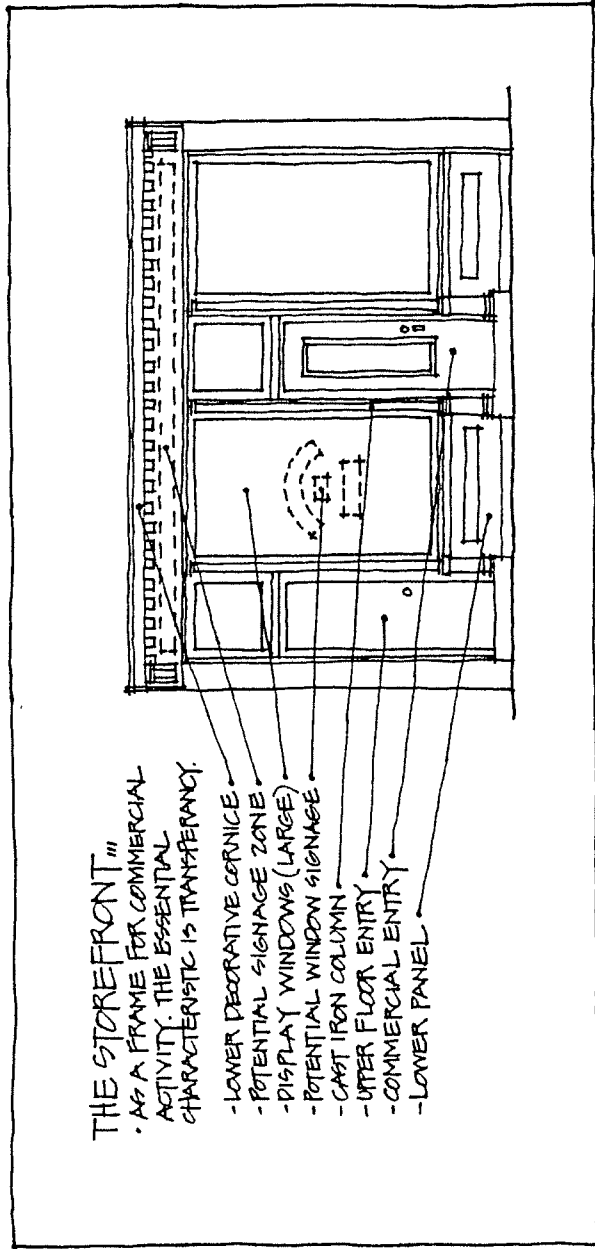 THE STOREFRONT...
• AS A FRAME FOR COMMERCIAL
ACTIVITY. THE ESSENTIAL
CHARACTERISTIC IS TRANSPERANCY.
- LOWER DECORATIVE CORNICE
- POTENTIAL SIGNAGE ZONE
- DISPLAY WINDOWS (LARGE)
- POTENTIAL WINDOW SIGNAGE
- CAST IRON COLUMN
- UPPER FLOOR ENTRY
- COMMERCIAL ENTRY
- LOWER PANEL